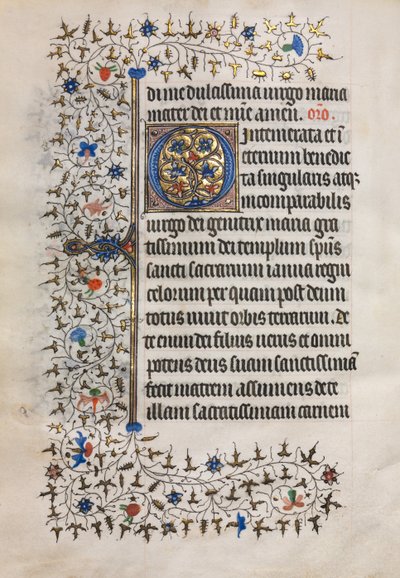 di me dulcissima uirgo maria
mater dei et mīe amen. oro.
O intemerata et ī
eternum benedic
ta singularis atq;
incomparabilis
uirgo dei genitrix maria gra
tissimum dei templum spūs
sancti sacrarium ianua regni
celorum per quam post deum
totus uiuit orbis terrarum. De
te enim dei filius uerus et omni
potens deus suam sanctissimā
fecit matrem assumens de te
illam sacratissimam carnem